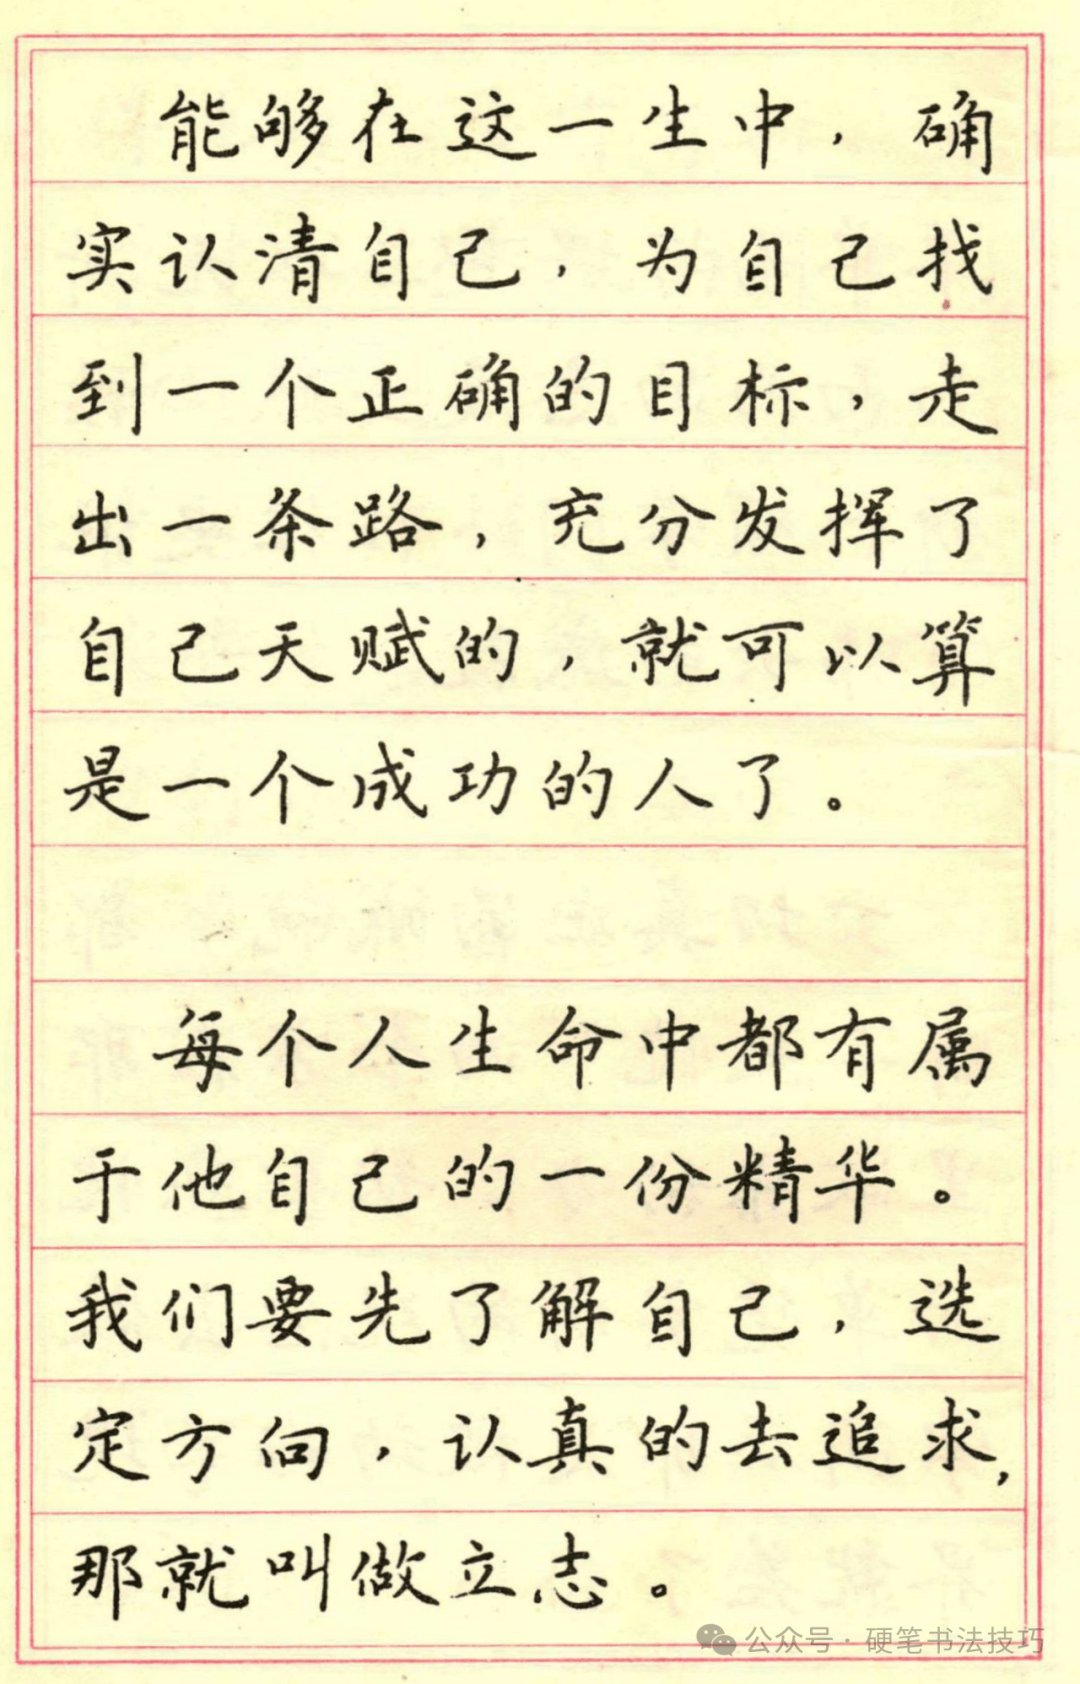 能够在这一生中，确
实认清自己，为自己找
到一个正确的目标，走
出一条路，充分发挥了
自己天赋的，就可以算
是一个成功的人了。
每个人生命中都有属
于他自己的一份精华。
我们要先了解自己，选
定方向，认真的去追求，
那就叫做立志。
公众号·硬笔书法技巧